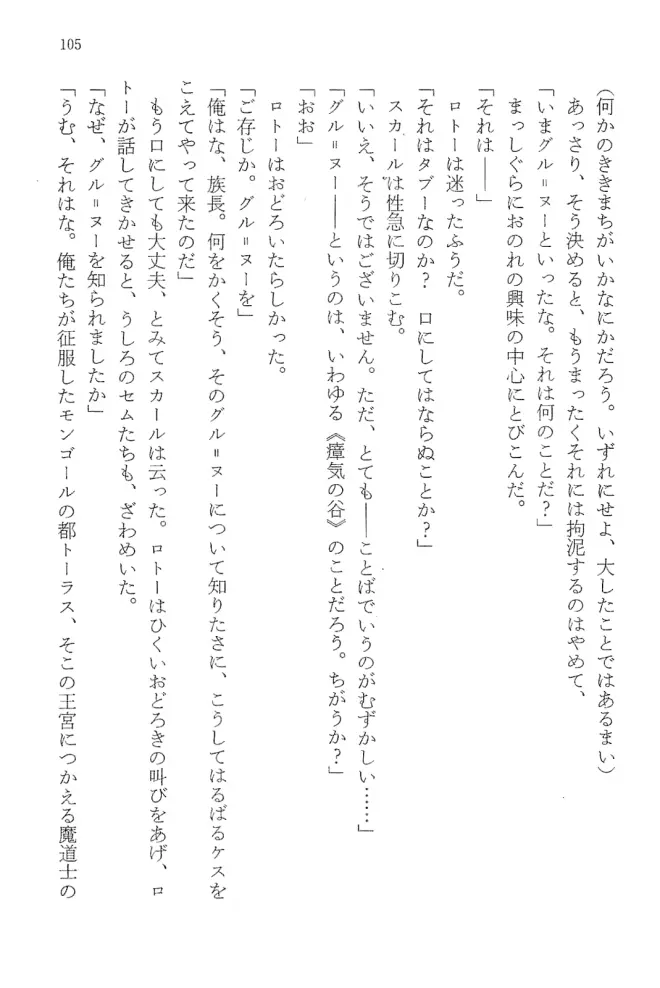 105
(何かのききまちがいかなにかだろう。いずれにせよ、大したことではあるまい)
あっさり、そう決めると、もうまったくそれには拘泥するのはやめて、
「いまグル=ヌーといったな。それは何のことだ?」
まっしぐらにおのれの興味の中心にとびこんだ。
「それは――」
ロトーは迷ったふうだ。
「それはタブーなのか? 口にしてはならぬことか?」
スカールは性急に切りこむ。
「いいえ、そうではございません。ただ、とても――ことばでいうのがむずかしい……」
「グル=ヌー――というのは、いわゆる《瘴気の谷》のことだろう。ちがうか?」
「おお」
ロトーはおどろいたらしかった。
「ご存じか。グル=ヌーを」
「俺はな、族長。何をかくそう、そのグル=ヌーについて知りたさに、こうしてはるばるケスを
こえてやって来たのだ」
もう口にしても大丈夫、とみてスカールは云った。ロトーはひくいおどろきの叫びをあげ、ロ
トーが話してきかせると、うしろのセムたちも、ざわめいた。
「なぜ、グル=ヌーを知られましたか」
「うむ、それはな。俺たちが征服したモンゴールの都トーラス、そこの王宮につかえる魔道士の